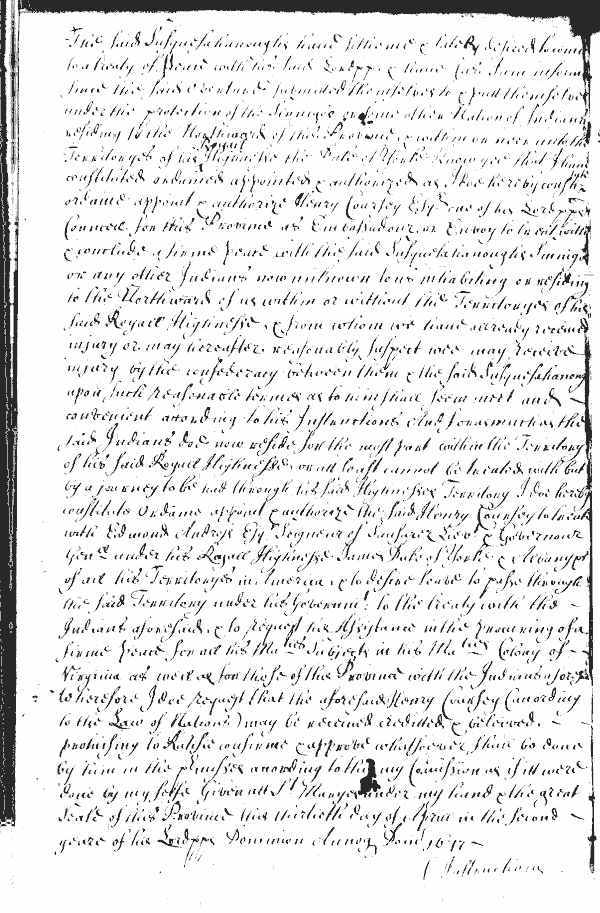 The said Susquesahanoughs have sithence & lately desired to come
to a treaty of Peace with his said Lordpp. & have (as I am inform
since the said overture submitted themselves to & putt themselves
under the protection of the Sinnigos or some other Nation of Indians
residing to the Northward of this Province & within or neer unto the
Territoryes of his Royal Highnesse the Duke of Yorke Know yee that I have
constituted ordained appointed & authorized as I doe hereby constit
ordaine appoint & authorize Henry Coursey Esqr. one of his Lordpps
Councell for this Province as Embassadour or Envoy to treat with
& conclude a firme Peace with the said Susquesahanoughs Sinnigo
or any other Indians now unknown to us inhabiting or residing
to the Northward of us within or without the Territoryes of his
said Royall Highnesse & from whom we have allready received
injury or may hereafter reasonably suspect wee may receive
injury by the confederacy between them & the said Susquesahanoug
upon such reasonable termes as to him shall seem meet and
convenient according to his Instructions And forasmuch as the
said Indians doe now reside for the most part within the Territory
of his said Royall Highnesse, or att least cannot be treated with but
by a journey to be had through his said Highnesses Territory I doe hereby
constitute ordaine appoint & authorize the said Henry Coursey to treat
with Edmond Andros Esq Seigneur of Sausmarez Lieut & Governour
Genll under his Royall Highnesse James Duke of Yorke & Albany &c
of all his Territoryes in America & to desire leave to passe through
the said Territory under his Governmt. to the treaty with the
Indians aforesaid, & to request his Assistance in the procuring of a
firme Peace for all his Maties Subjects in his Maties Colony of
Virginia as well as for those of this Province with the Indians aforesd
Wherefore I doe request that the aforesaid Henry Coursey (according
to the Law of Nations) may be received creditted & beleived.
promising to Ratifie confirme & approve whatsoever shall be done
by him in the premisses according to this my Comission as if itt were
done by my selfe Given att St. Maryes under my hand & the great
Seale of this Province this thirtieth day of Aprill in the second
yeare of his Lordpps Dominion Annoq Domi 1677
Instructions